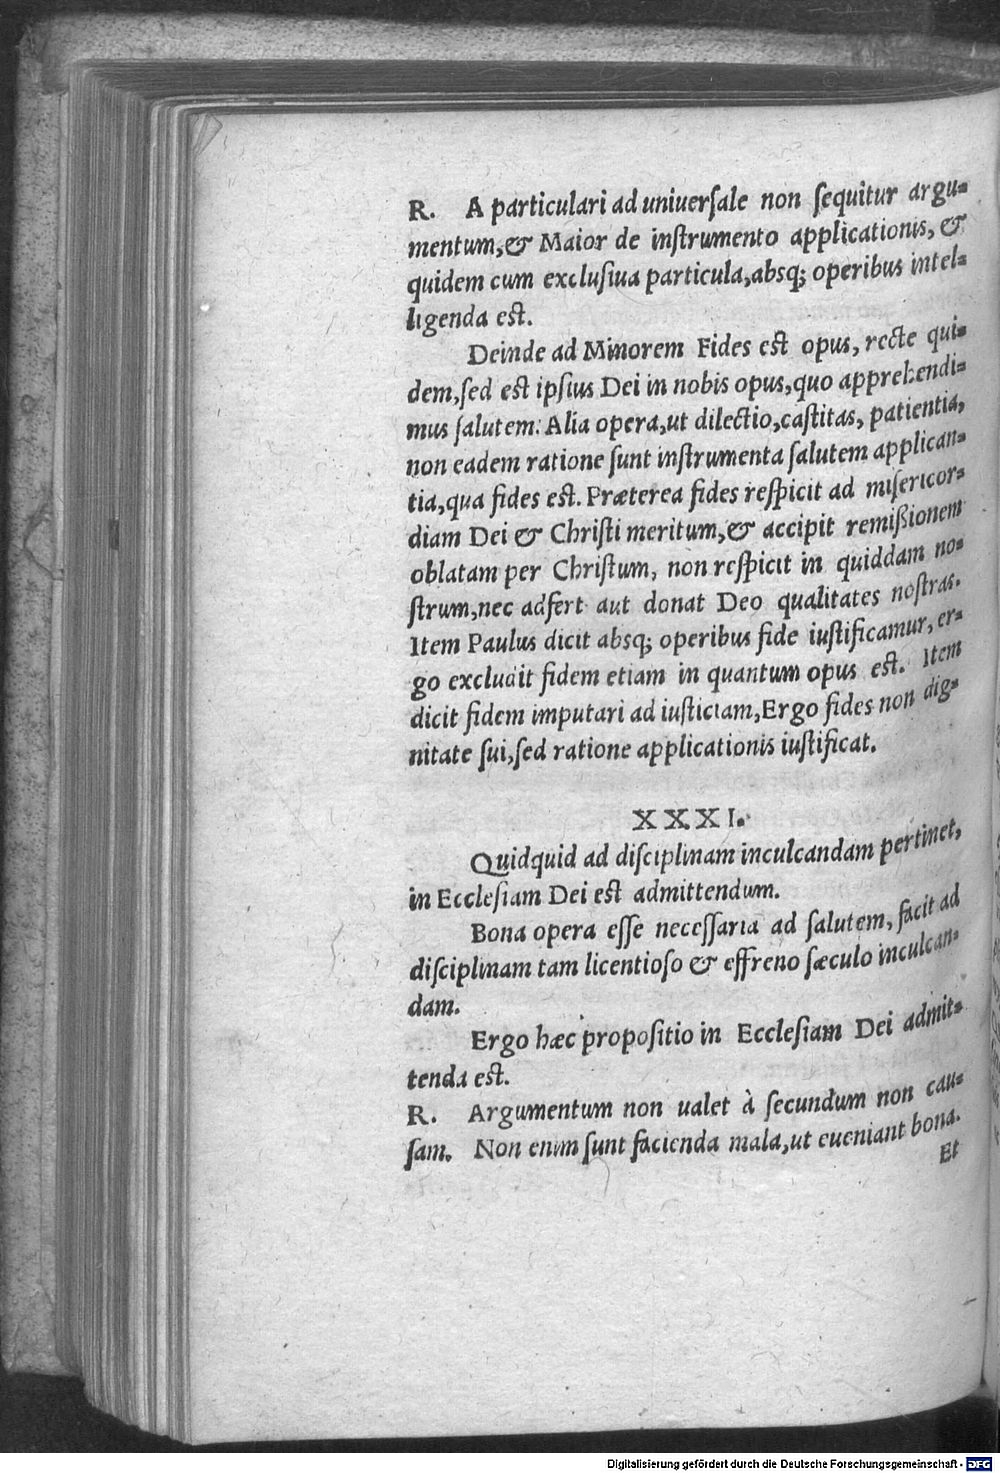 R. A particulari ad uniuerſale non ſequitur argu-
mentum, & Maior de inſtrumento applicationis, &
quidem cum excluſiua particula, absq; operibus intel-
ligenda est.
Deinde ad Minorem Fides est opus, recte qui-
dem, ſed est ipſius Dei in nobis opus, quo apprehendi-
mus ſalutem. Alia opera, ut dilectio, caſtitas, patientia,
non eadem ratione ſunt inſtrumenta ſalutem applican-
tia, qua fides est. Præterea fides reſpicit ad miſericor-
diam Dei & Chriſti meritum, & accipit remißionem
oblatam per Chriſtum, non reſpicit in quiddam no-
ſtrum, nec adfert aut donat Deo qualitates noſtras.
Item Paulus dicit absq; operibus fide iuſtificamur, er-
go excludit fidem etiam in quantum opus est. Item
dicit fidem imputari ad iuſticiam, Ergo fides non dig-
nitate ſui, ſed ratione applicationis iuſtificat.
XXXI.
Quidquid ad diſciplinam inculcandam pertinet,
in Eccleſiam Dei est admittendum.
Bona opera eſſe neceſſaria ad ſalutem, facit ad
diſciplinam tam licentioſo & effreno ſæculo inculcan-
dam.
Ergo hæc propoſitio in Eccleſiam Dei admit-
tenda est.
R. Argumentum non ualet à ſecundum non cau-
ſam. Non enim ſunt facienda mala, ut eueniant bona.
Et
Digitalisierung gefördert durch die Deutsche Forschungsgemeinschaft - DFG